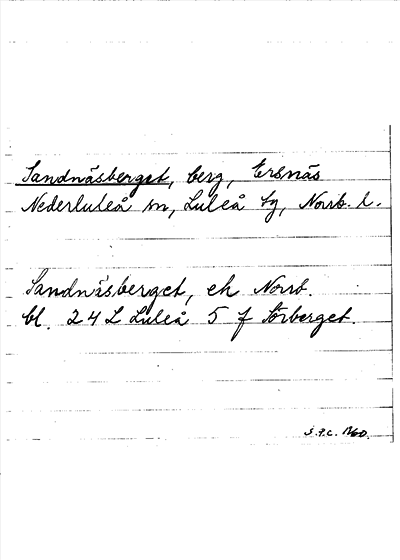 Sandnäsberget, berg, Ersnäs
Nederluleå sn, Luleå tg, Norrb. l.
Sandnäsberget, ek Norrb.
bl. 24 L Luleå 5 f Storberget.
S.F.C. 1960.